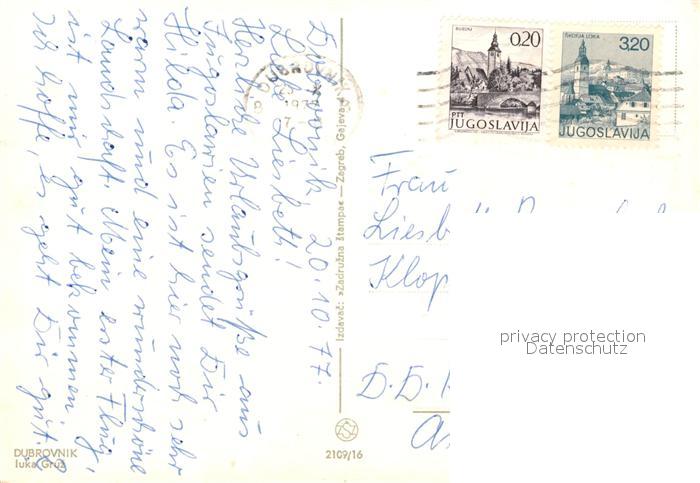 Dubrovnik, 20.10.77.
Liebe Liesbeth!
Herzliche Urlaubsgrüße aus
Jugoslawien sendet Dir
Hilda. Es ist hier noch sehr
warm und eine wunderschöne
Landschaft. Mein erster Flug
ist mir gut bekommen.
Ich hoffe, es geht Dir gut.
DUBROVNIK
luka Gruž
Izdavač: »Zadružna štampa« — Zagreb, Gajeva
2109/16
DUBROVNIK
BLED
0,20
PTT
JUGOSLAVIJA
ŠKOFJA LOKA
3,20
JUGOSLAVIJA
Frau
Liesb
Klop
privacy protection
Datenschutz